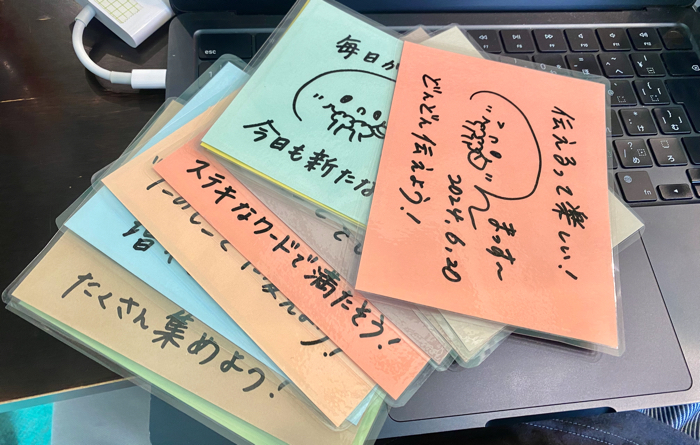 伝えるって楽しい!
まっす~
2024.6.20
どんどん伝えよう!
毎日が
今日も新たな
ステキなワードで満たそう!
たのしことに変えよう!
増や
たくさん集めよう!
esc